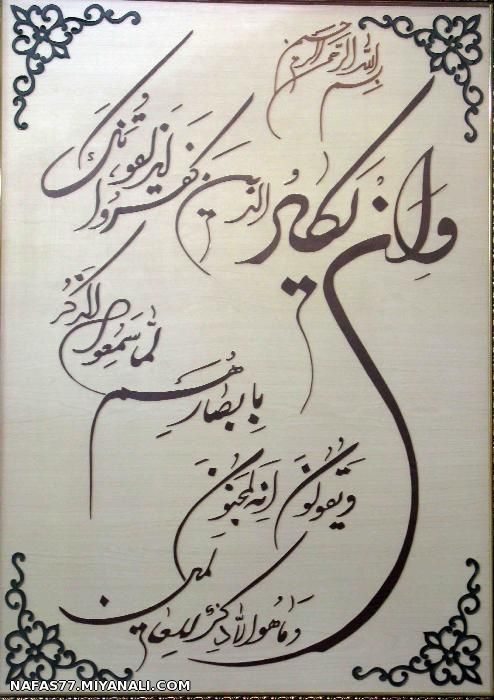 بسم الله الرحمن الرحیم
وَاِن یَکادُ الذین کفروا لیزلقونک
بِاَبصارِهِم لمّا سَمِعوا الذکرُ
وَیَقولونَ اِنّه لمجنون
وَما هُوَ اِلّا ذِکرٌ للعالمین
NAFAS77.MIYANALI.COM